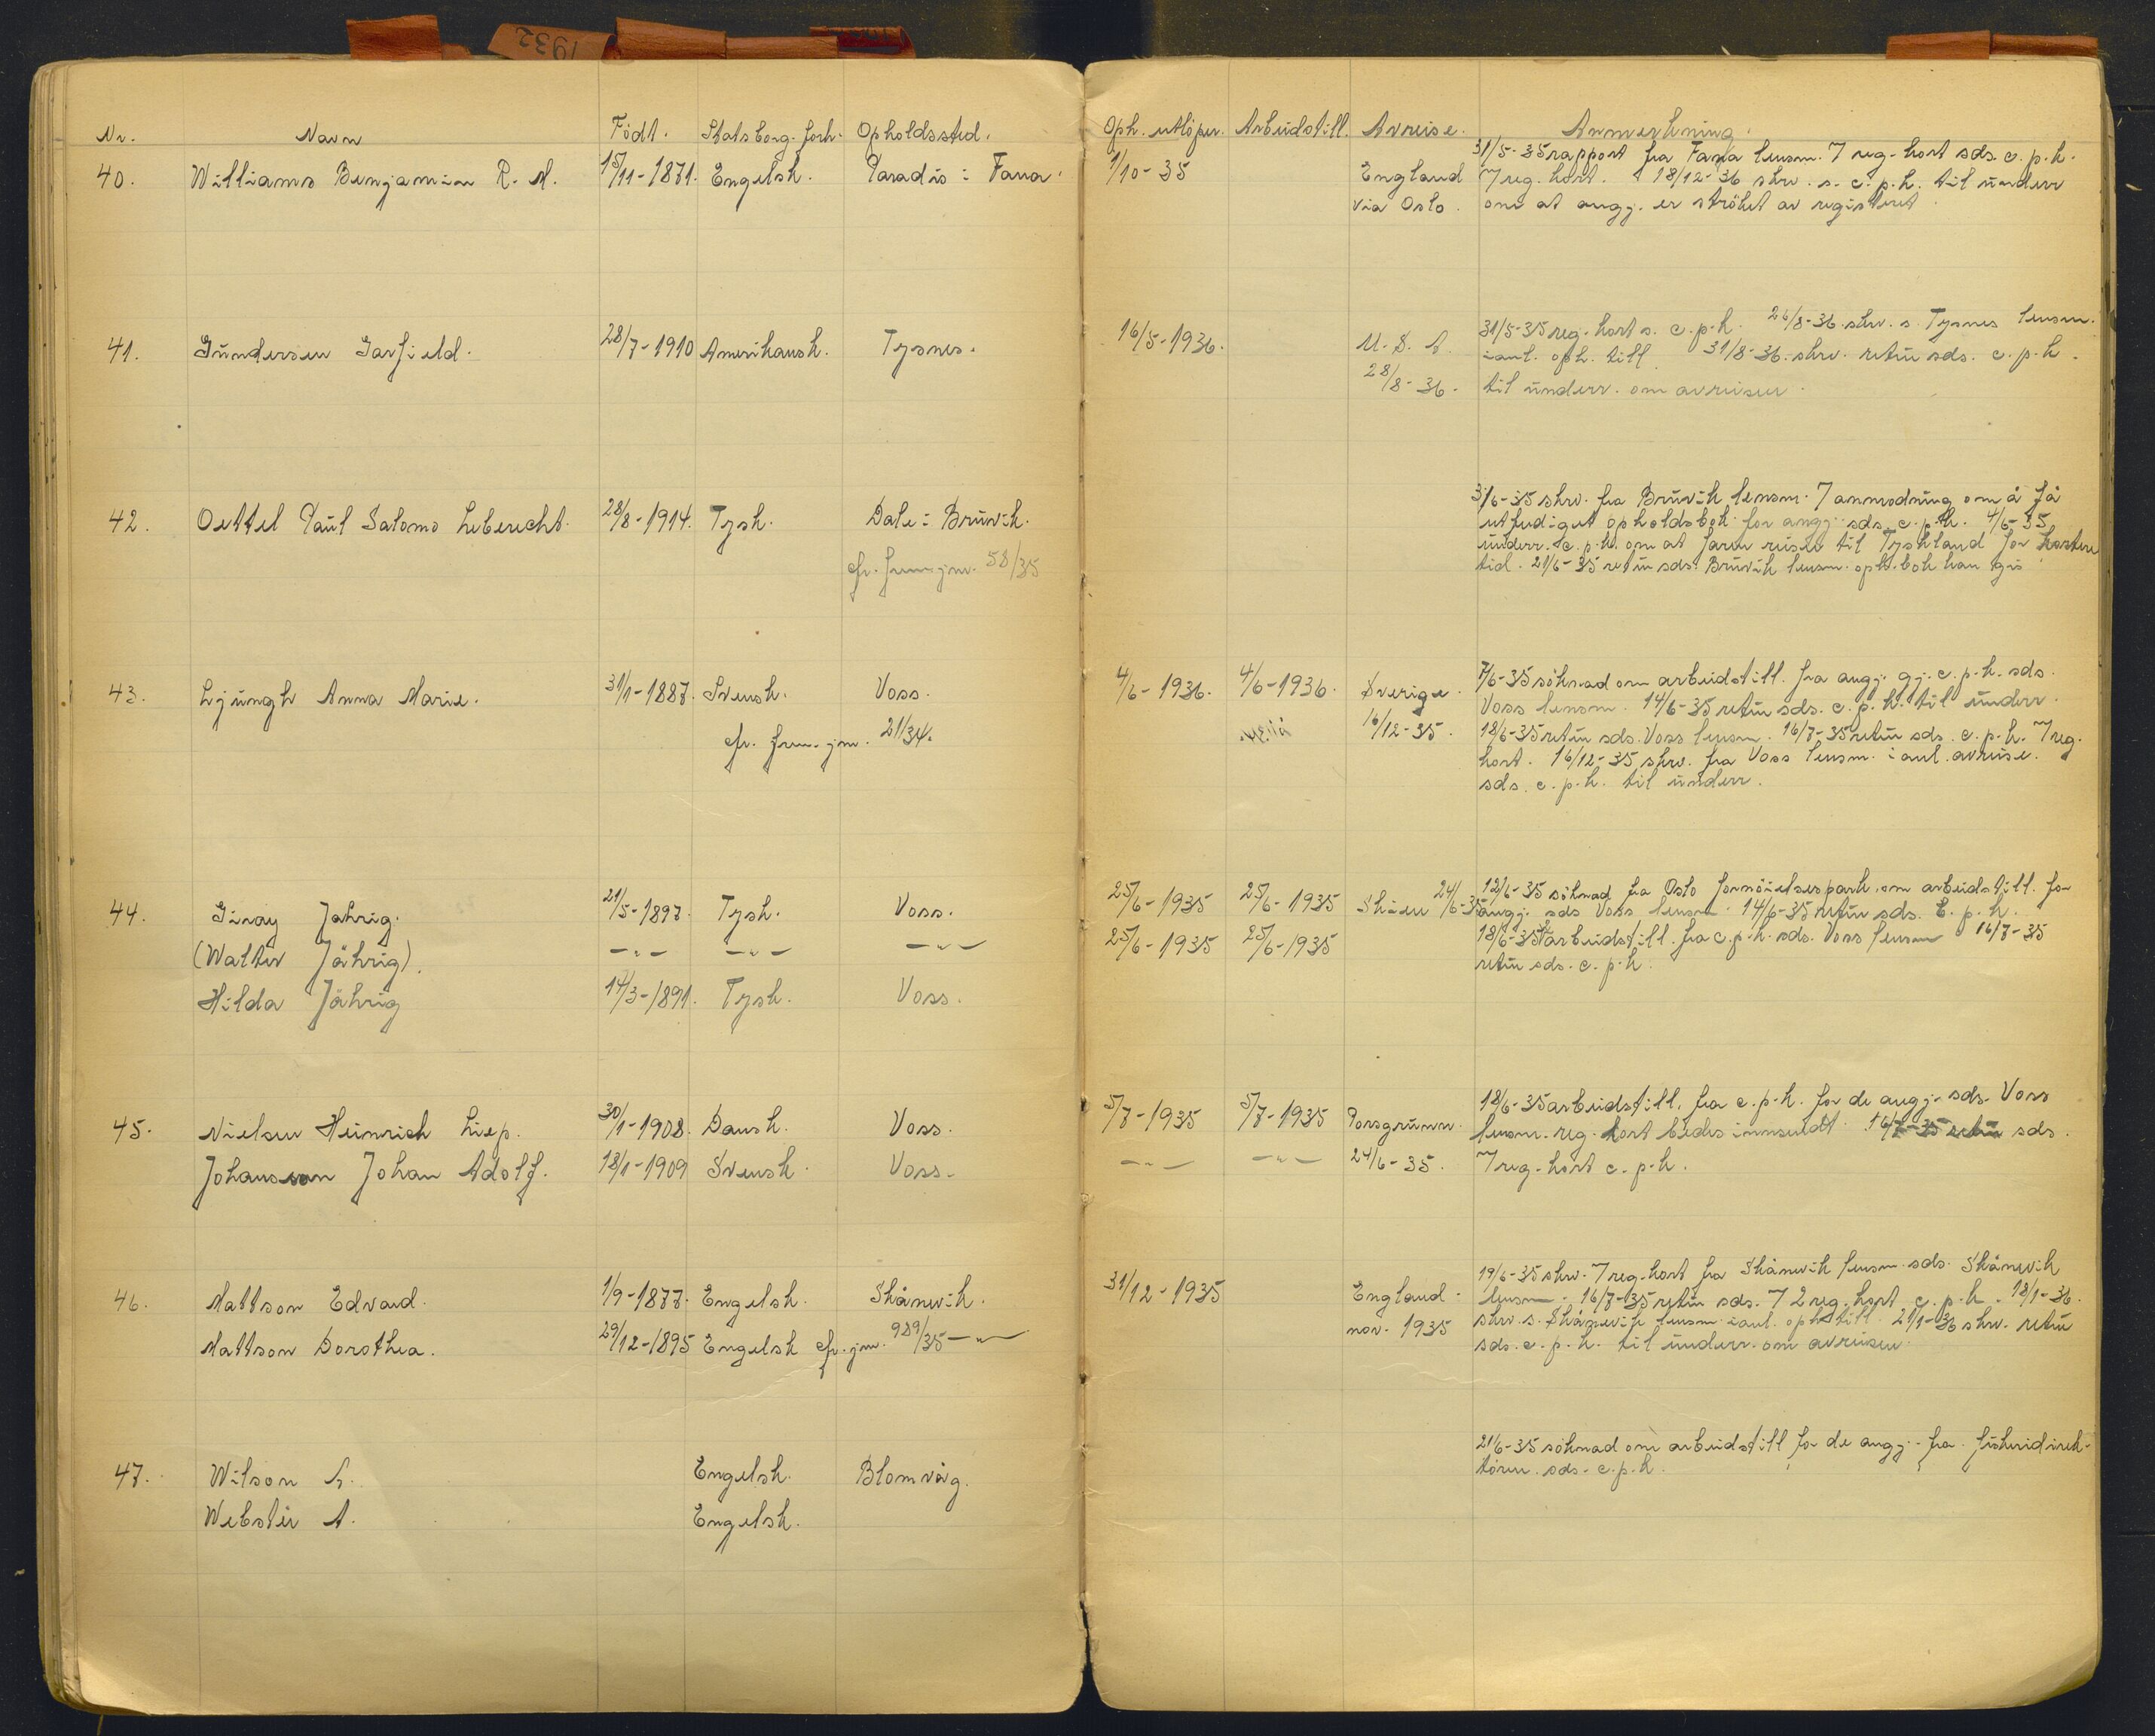 1932
Nr. Navn Födt. Statsborg. forh. Opholdssted.
40. Williams Benjamin R. M. 15/11-1871. Engelsk. Paradis i Fana.
41. Gundersen Garfield. 28/7-1910 Amerikansk. Tysnes.
42. Oettel Paul Salomo Leberecht. 28/8-1914. Tysk. Dale i Bruvik.
cfr. frem.jnr. 58/35
43. Ljungh Anna Marie. 31/1-1887. Svensk. Voss.
cfr. frem.jnr. 21/34.
44. Giray Jahrig. 21/5-1897. Tysk. Voss.
(Walter Jährig). —"— —"— —"—
Hilda Jährig 14/3-1891. Tysk. Voss.
45. Nielsen Heinrich Liep. 30/1-1908. Dansk. Voss.
Johansson Johan Adolf. 18/1-1909 Svensk. Voss.
46. Mattson Edvard. 1/9-1877. Engelsk. Skånevik.
Mattson Dorothea. 29/12-1895 Engelsk cfr. jnr. 989/35 —"—
47. Wilson Engelsk. Blomvåg.
Webster A. Engelsk.
Oph. utlöper. Arbeidstill. Avreise. Anmerkning.
1/10-35 England via Oslo.
31/5-35 rapport fra Fana lensm. 7 reg-kort sds. c. p. k.
7 reg. kort. 18/12-36 skr. s. c. p. k. til underr
om at angj. er ströket av registeret.
16/5-1936. U. S. A. 28/8-36.
31/5-35 reg-kort s. c. p. k. 26/8-36. skr. s. Tysnes lensm.
i anl. oph. till. 31/8-36. skr. retur sds. c. p. k.
til underr. om avreisen.
3/6-35 skr. fra Bruvik lensm. 7 anmodning om å få
utferdiget opholdsbok for angj. sds. c. p. k. 4/6-35
underr. c. p. k. om at faren reiser til Tyskland for kortere
tid. 21/6-35 retur sds. Bruvik lensm. oph. bok kan gis
4/6-1936. 4/6-1936. Sverige. 16/12-35.
7/6-35 söknad om arbeidstill. fra angj. gj. c. p. k. sds.
Voss lensm. 14/6-35 retur sds. c. p. k. til underr.
18/6-35 retur sds. Voss lensm. 16/7-35 retur sds. c. p. k. 7 reg.
kort. 16/12-35 skr. fra Voss lensm. i anl. avreise.
sds. c. p. k. til underr.
25/6-1935 25/6-1935 Skien 24/6-35
25/6-1935 25/6-1935
12/6-35 söknad fra Oslo fornöielsespark. om arbeidstill. for
angj. sds Voss lensm. 14/6-35 retur sds. c. p. k.
18/6-35 arbeidstill. fra c. p. k. sds. Voss lensm 16/7-35
retur sds. c. p. k.
5/7-1935 5/7-1935 Porsgrunn.
—"— —"— 24/6-35.
18/6-35 arbeidstill. fra c. p. k. for de angj. sds. Voss
lensm. reg. kort bedes innsendt. 16/7-35 retur sds.
7 reg-kort c. p. k.
31/12-1935 England. nov. 1935
19/6-35 skr. 7 reg-kort fra Skånevik lensm. sds. Skånevik
lensm. 16/7-35 retur sds. 7 2 reg. kort c. p. k. 18/1-36.
skr. s. Skånevik lensm. i anl. oph. till. 21/1-36 skr. retur
sds. c. p. k. til underr. om avreisen.
21/6-35 söknad om arbeidstill for de angj. fra fiskeridirek-
tören. sds. c. p. k.